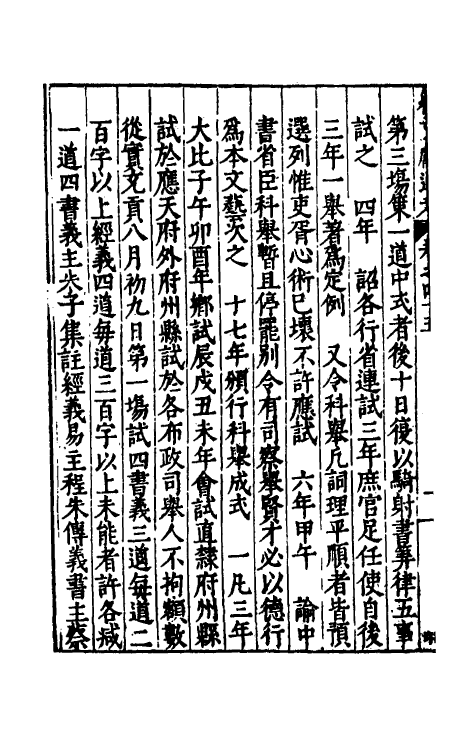 第三場策一道中式者後十日復以騎射書筭律五事
試之　四年　詔各行省連試三年庶官足任使自後
三年一舉著爲定例　又令科舉凡詞理平順者皆預
選列惟吏胥心術已壞不許應試　六年甲午　諭中
書省臣科舉暫且停罷別令有司察舉賢才必以德行
爲本文藝次之　十七年頒行科舉成式　一凡三年
大比子午卯酉年鄉試辰戌丑未年會試直隷府州縣
試於應天府外府州縣試於各布政司舉人不拘額數
從實充貢八月初九日第一場試四書義三道每道二
百字以上經義四道每道三百字以上未能者許各減
一道四書義主朱子集註經義易主程朱傳義書主蔡